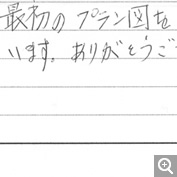 最初のプラン図を
います。ありがとうご